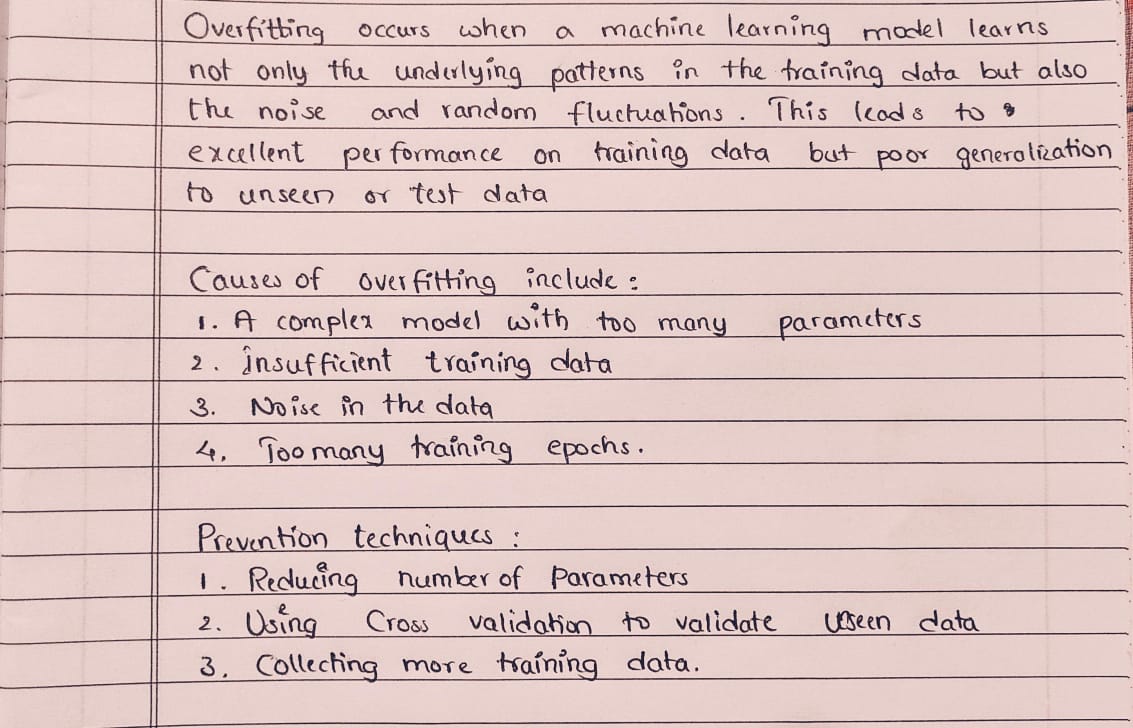 Overfitting occurs when a machine learning model learns
not only the underlying patterns in the training data but also
the noise and random fluctuations. This leads to
excellent performance on training data but poor generalization
to unseen or test data
Causes of overfitting include:
1. A complex model with too many parameters
2. insufficient training data
3. Noise in the data
4. Too many training epochs.
Prevention techniques:
1. Reducing number of Parameters
2. Using Cross validation to validate useen data
3. Collecting more training data.